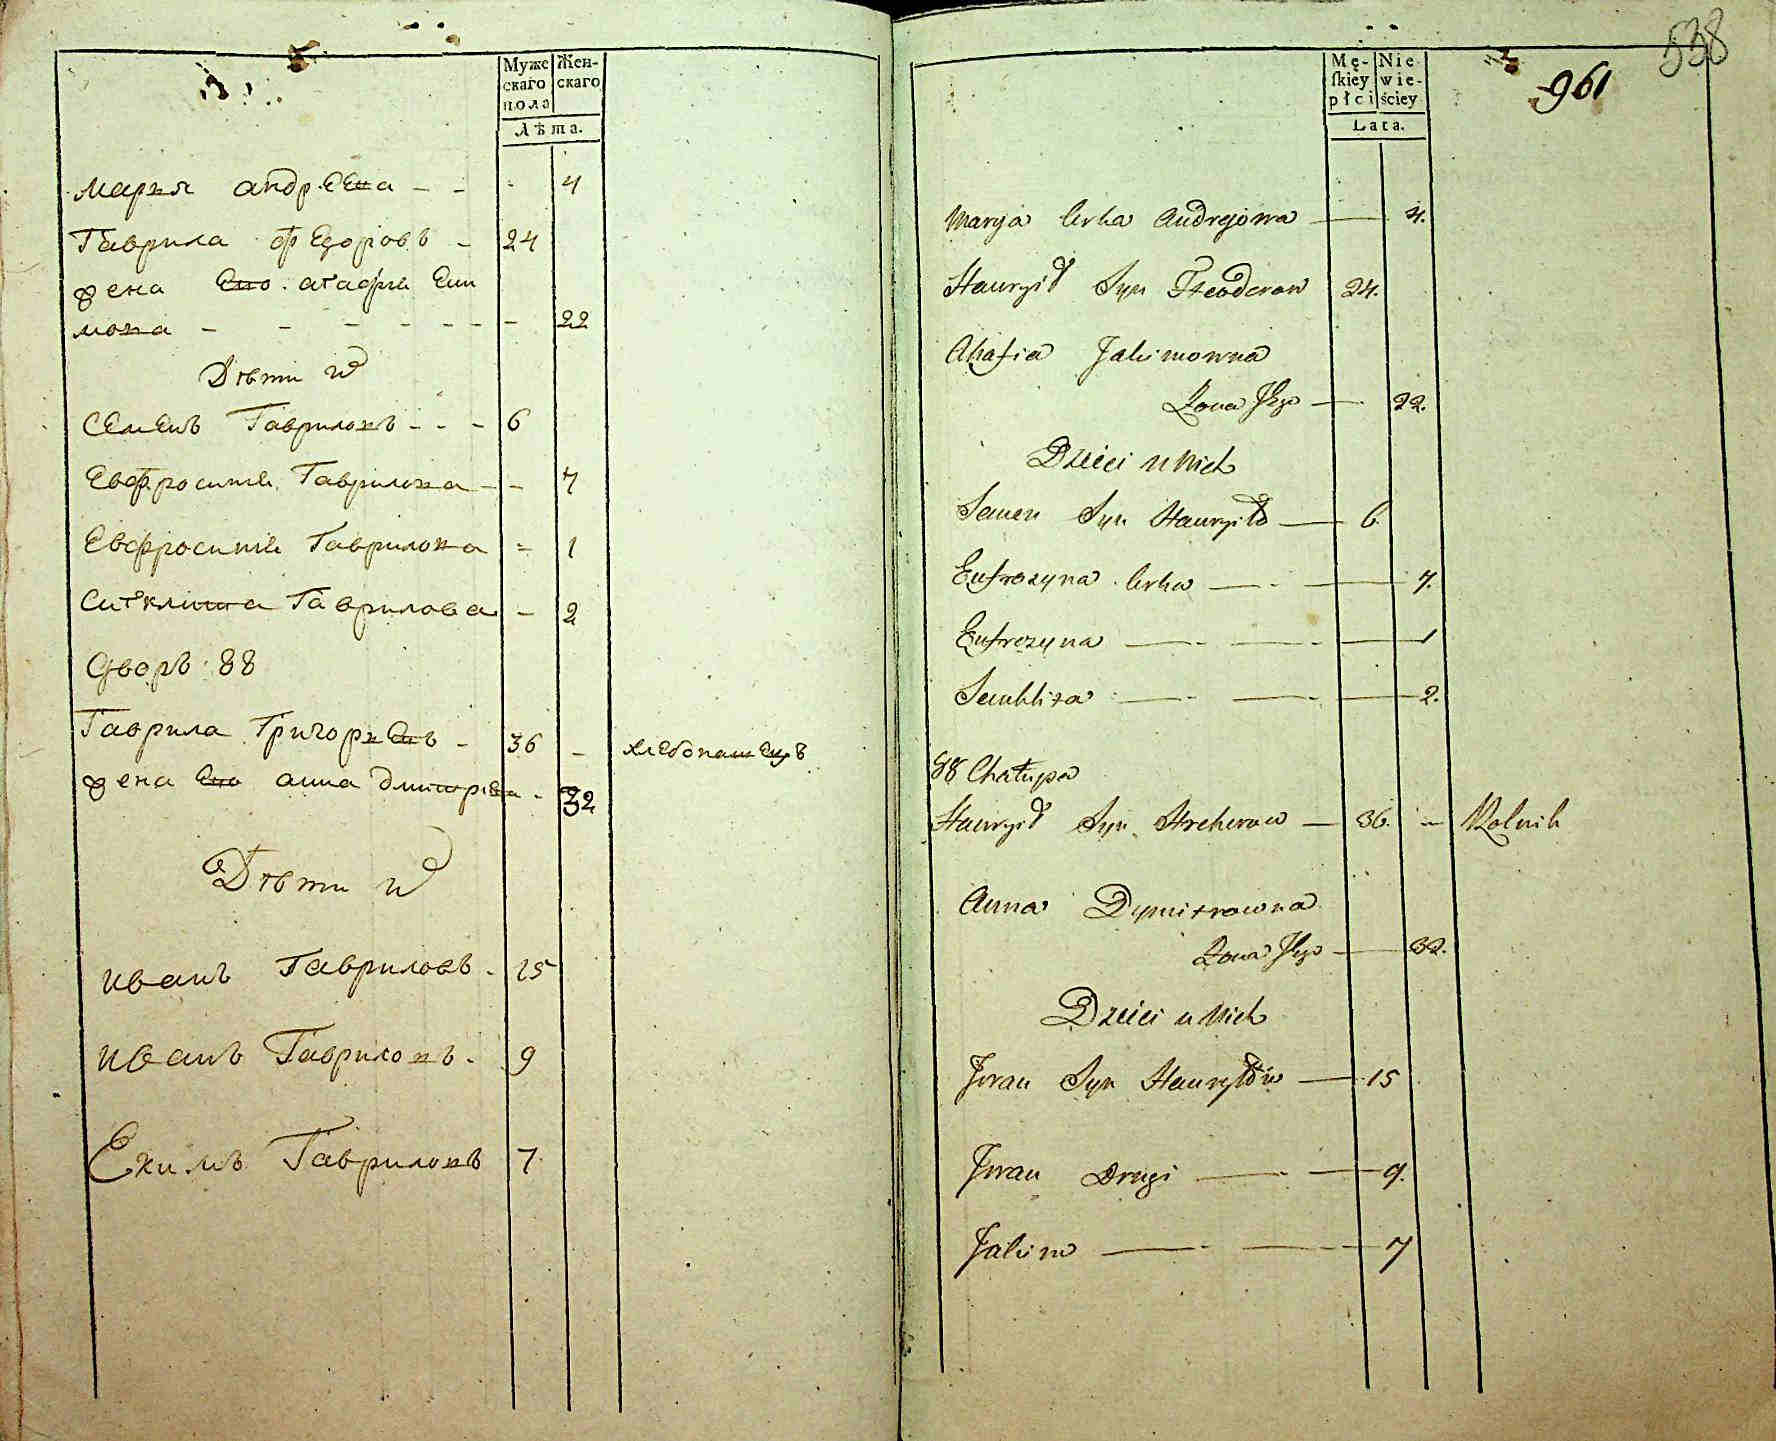 Муже
скаго
пола
Жен-
скаго
Лѣта.
Мария андрѣева - - - 4
Гаврила Федоровъ - 24
жена Его агафия Еки
мова - - - - - - - 22
Дѣти
Семенъ Гавриловъ - - - 6
Евфросиния Гаврилова - - 4
Евфросиния Гаврилова = 1
Гаврилова - 2
дворъ 88
Гаврила Григориевъ - 36 - хлебопашецъ
жена Его анна дмитриева - 32
Дѣти
иванъ Гавриловъ - 15
иванъ Гавриловъ - 9
Екимъ Гавриловъ 7
538
961
Mę-
skiey
płci
Nie
wie-
ściey
Lata.
Marya Crka Andrejowa — 4.
Hawrył Syn Fteodorow 24.
Ahafia Jakimowna
Żona Jego — 22.
Dzieci u Nich
Semen Syn Hawryło — 6.
Eufrozyna Crka — - — 4.
Eufrozyna — - — - — 1
— - — - — 2.
88 Chałupa
Hawrył Syn Hrehorow — 36. - Rolnik
Anna Dymitrowna
Żona Jego — 32.
Dzieci u Nich
Jwan Syn Hawryłów — 15
Jwan Drugi — - — 9.
Jakim — - — - — 7